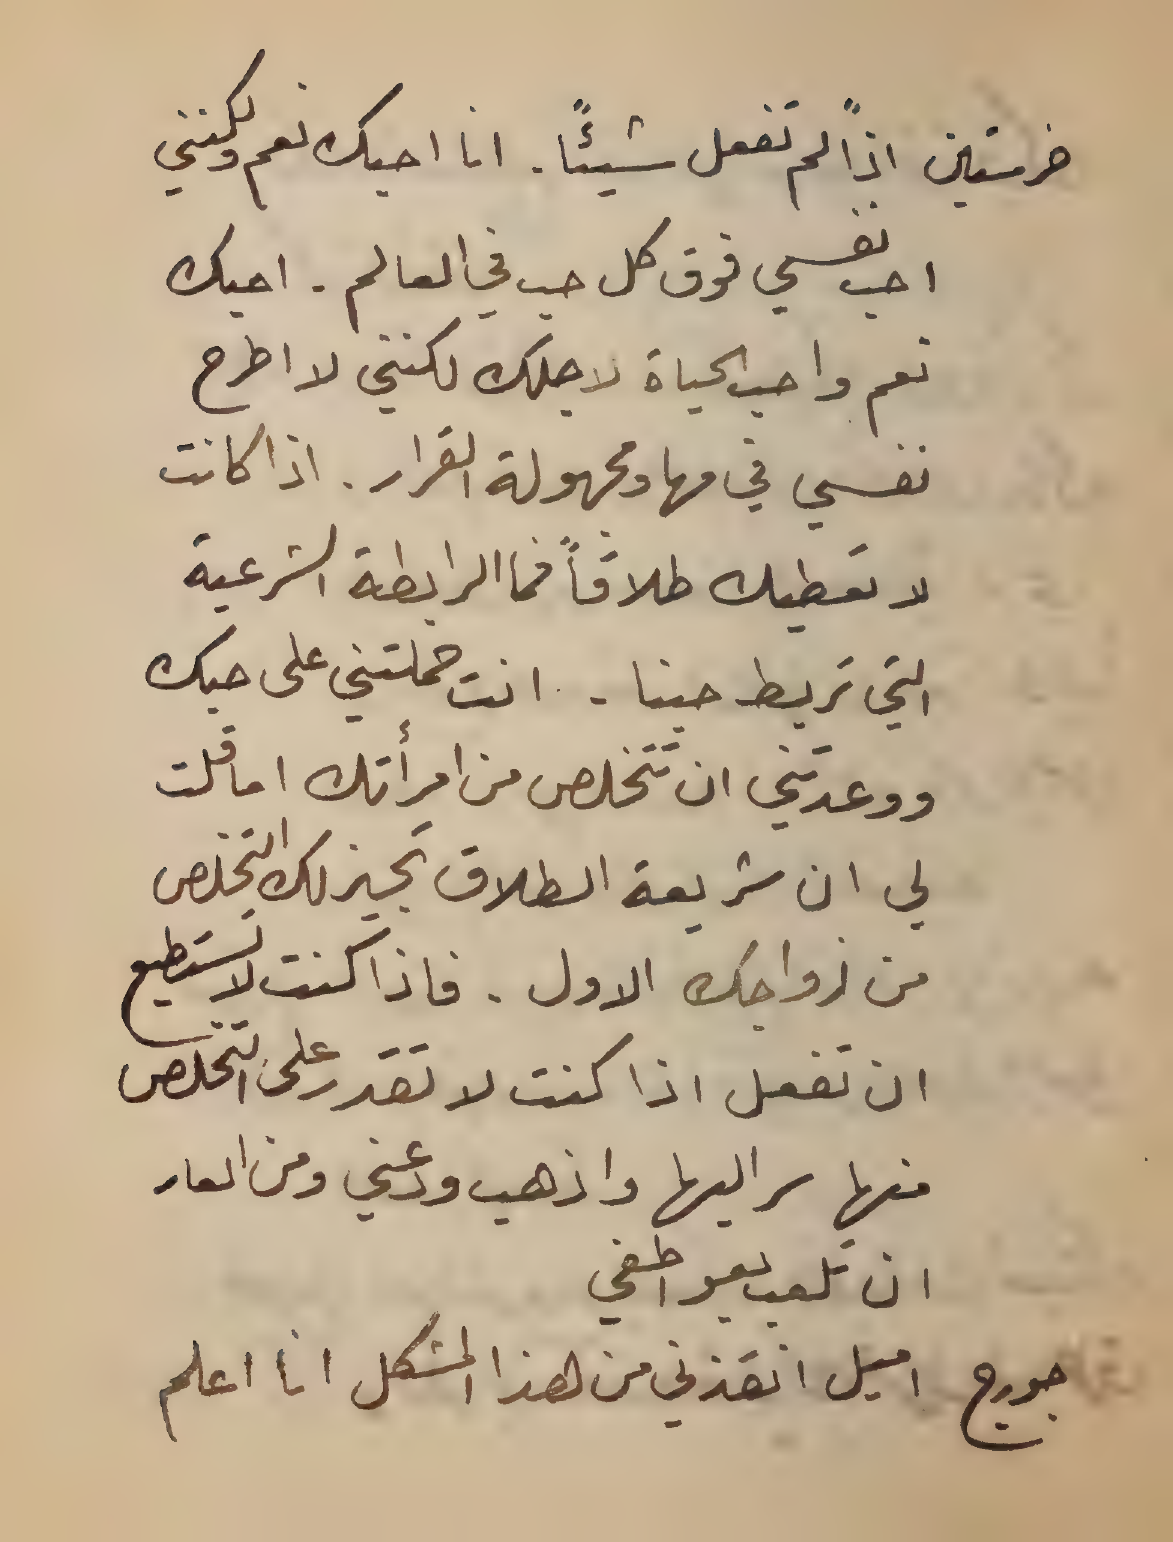 خرستين اذاً لم تفعل شيئًا. انا احبك نعم ولكنني
احب نفسي فوق كل حب في العالم. احبك
نعم واحب الحياة لاجلك لكنني لا اطرح
نفسي في مهاو مجهولة القرار. اذا كانت
لا تعطيك طلاقاً فما الرابطة الشرعية
التي تربط حبنا. انت حملتني على حبك
ووعدتني ان تتخلص من امرأتك اما قلت
لي ان شريعة الطلاق تجيز لك التخلص
من زواجك الاول. فاذا كنت لا تستطيع
ان تفعل اذا كنت لا تقدر على التخلص
منها سر اليها واذهب ودعني ومن العار
ان تلعب بعواطفي
جورج اميل انقذني من هذا المشكل انا اعلم